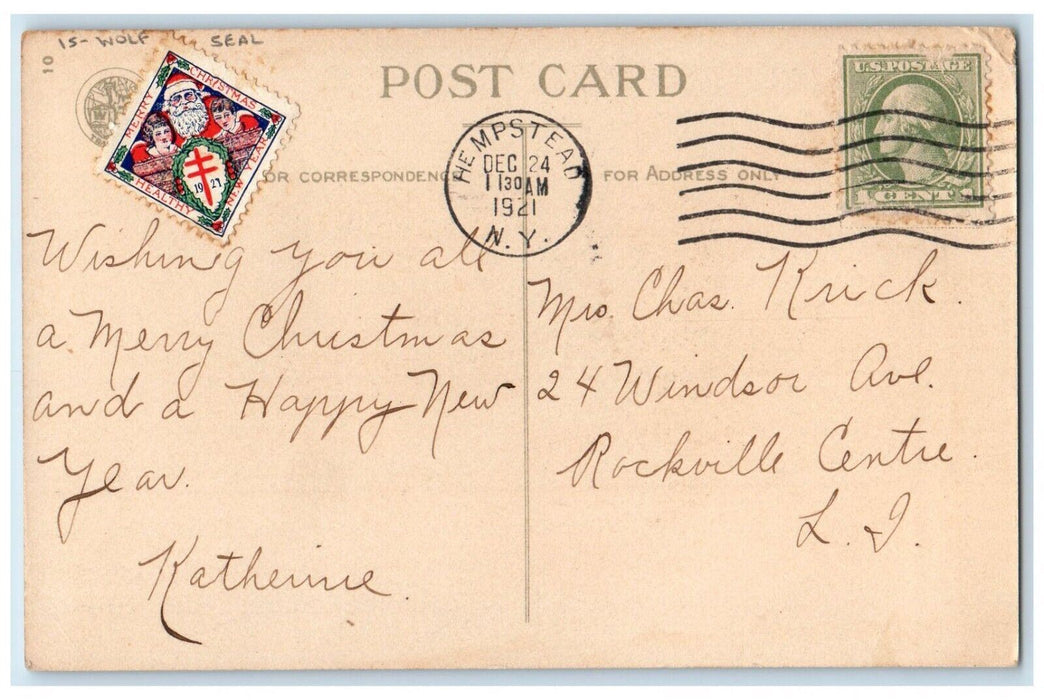 15- WOLF SEAL
10
MERRY CHRISTMAS
HEALTHY NEW YEAR
1921
POST CARD
OR CORRESPONDENC
FOR ADDRESS ONLY
HEMPSTEAD
DEC 24
11 30 AM
1921
N.Y.
U.S. POSTAGE
1 CENT 1
Wishing you all
a Merry Christmas
and a Happy New
Year.
Katherine.
Mrs. Chas. Krick.
24 Windsor Ave.
Rockville Centre.
L. I.